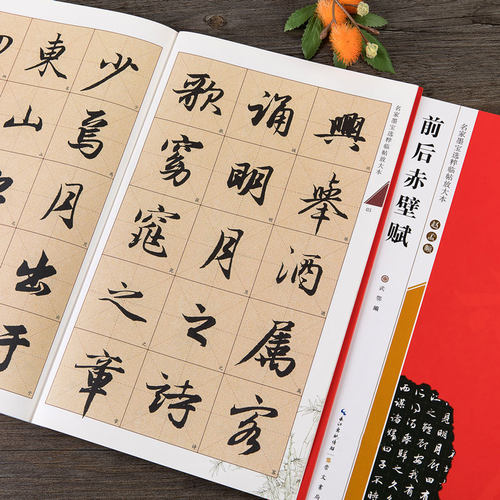 興舉酒属客
誦明月之詩
歌窈窕之章
少焉月出于
東山
名家墨宝选粹临帖放大本
名家墨宝选粹临帖放大本
前后赤壁赋
赵孟頫
编
长江出版传媒
崇文书局